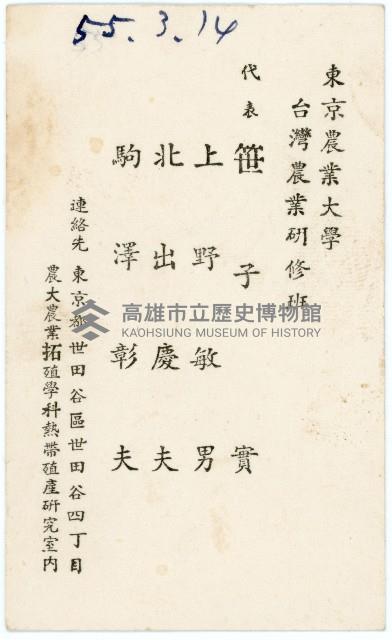 55.3.14
東京農業大學
台灣農業研修班
代表 笹子實
上野敏男
北出慶夫
駒澤彰夫
連絡先 東京都世田谷區世田谷四丁目
農大農業拓殖學科熱帶殖產研究室內
高雄市立歷史博物館
KAOHSIUNG MUSEUM OF HISTORY